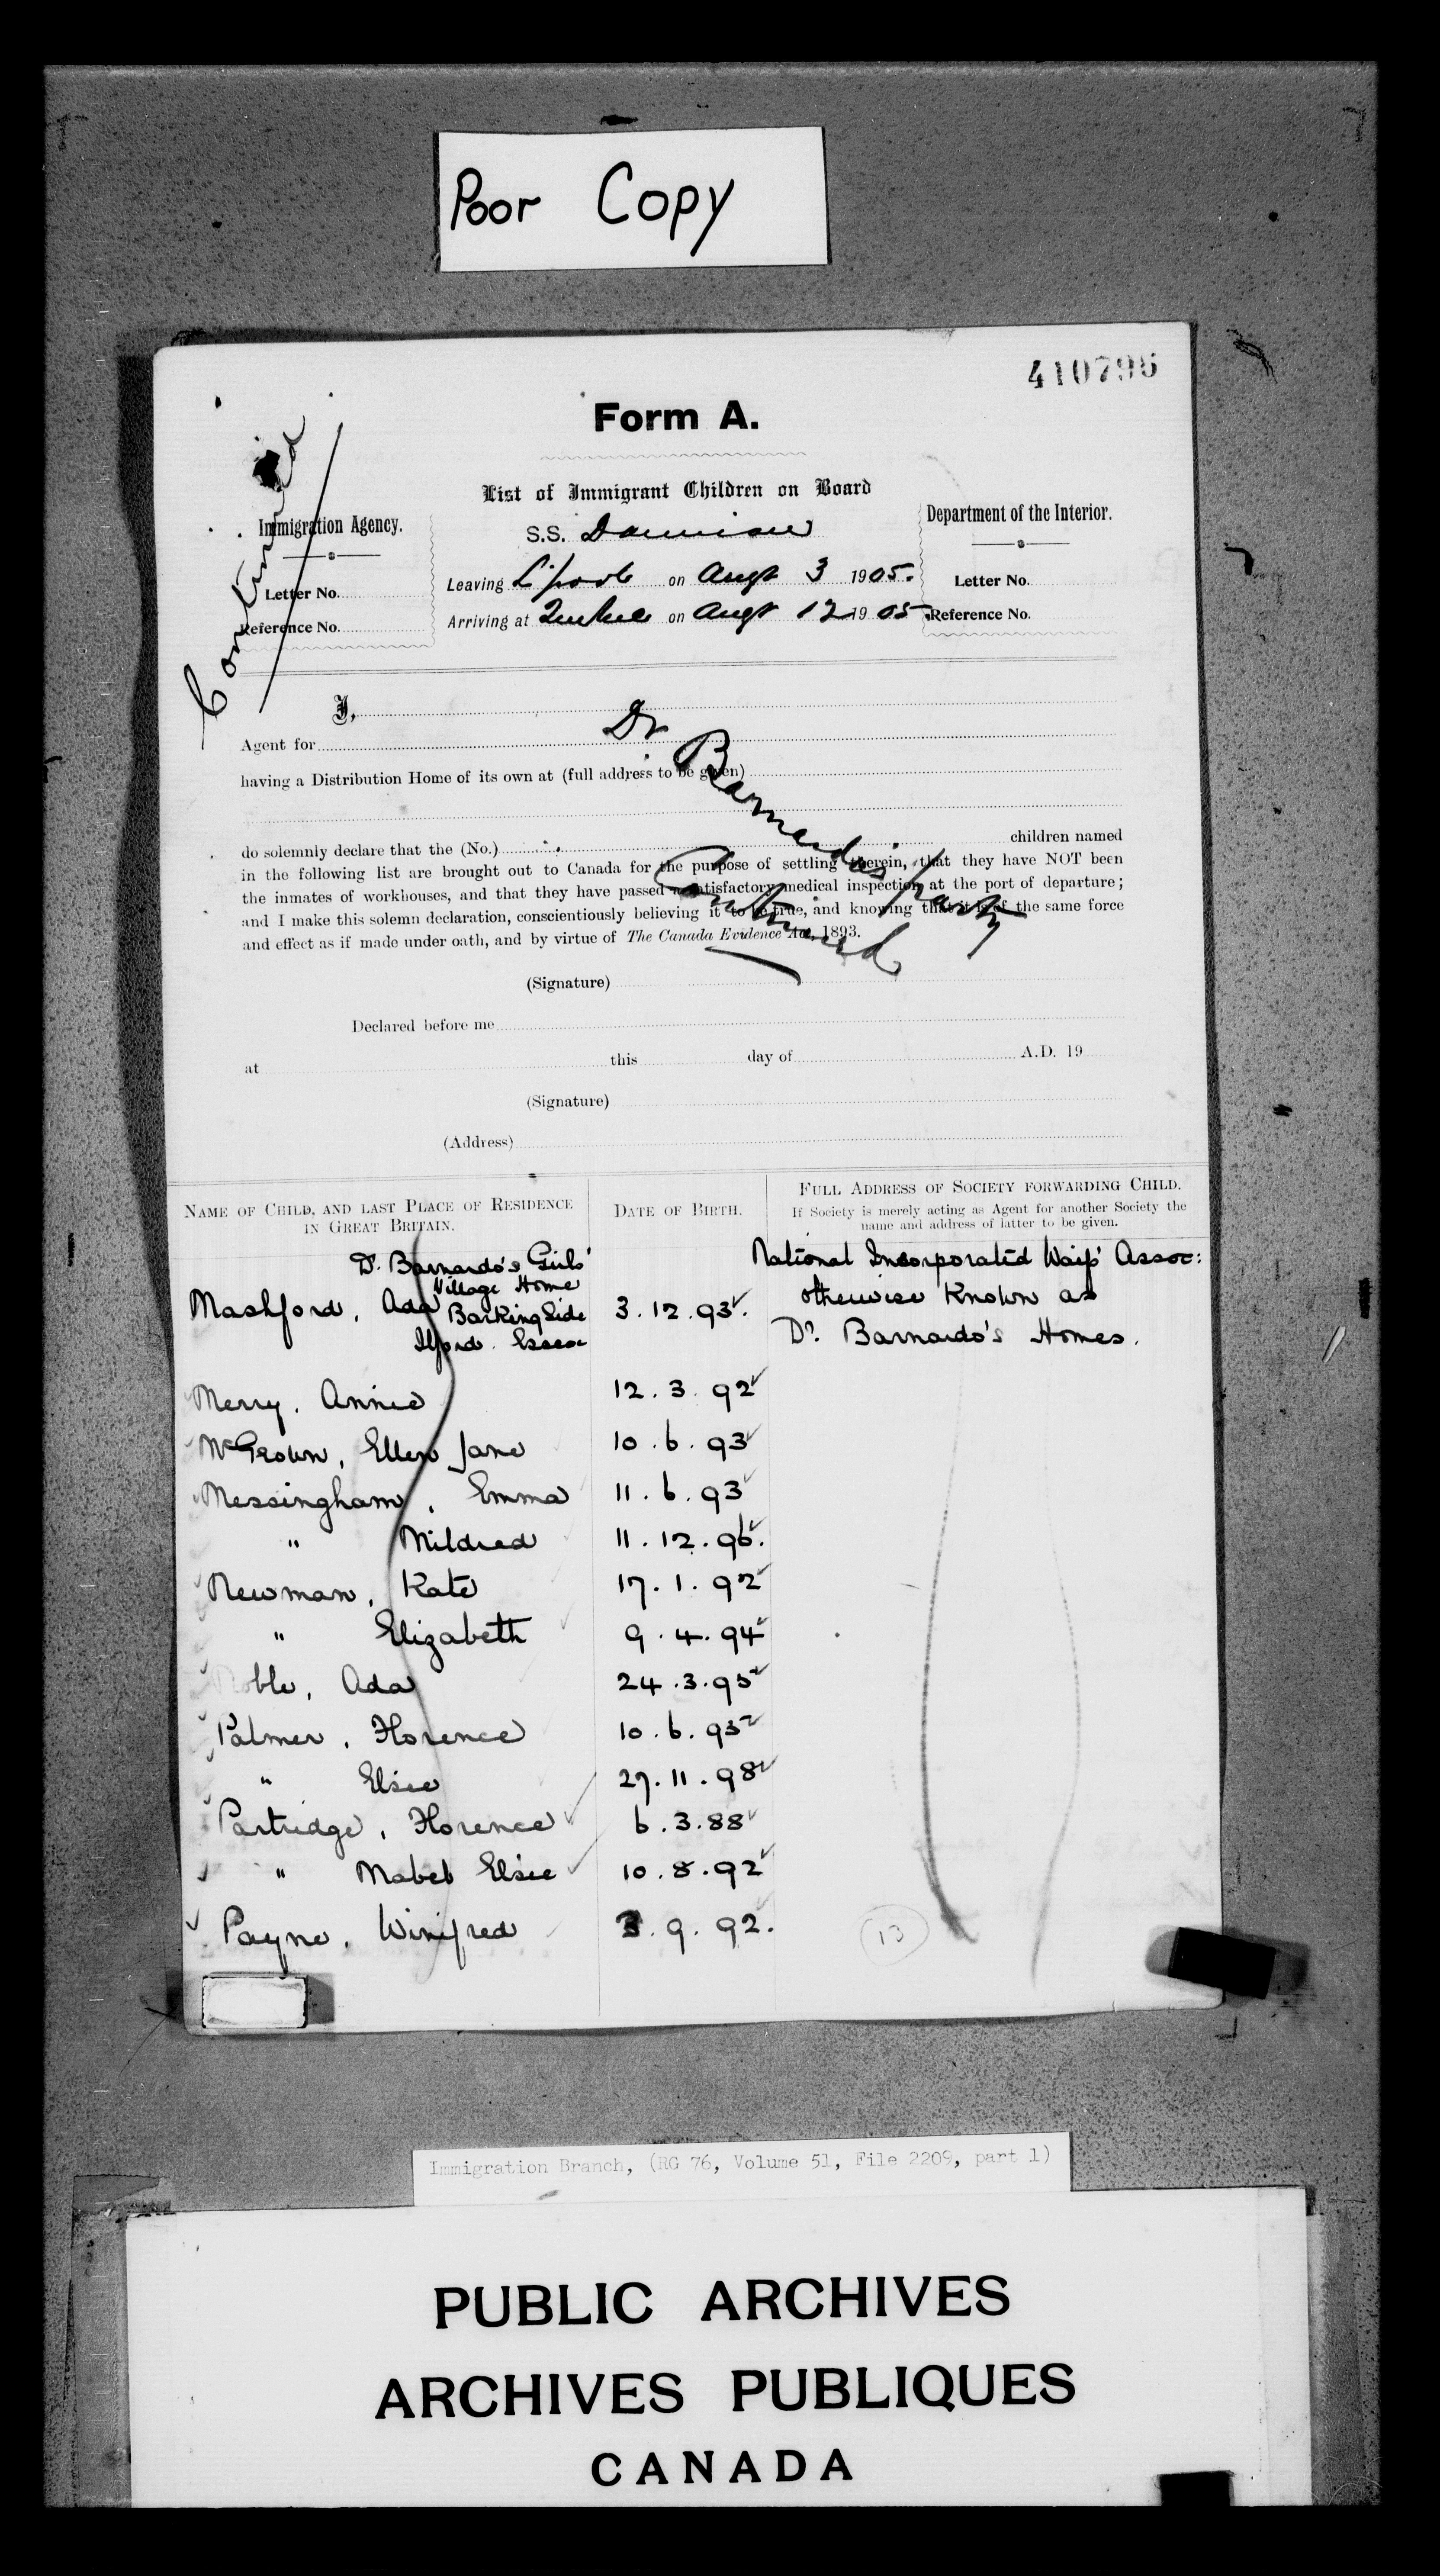 Poor Copy
410796
Form A.
List of Immigrant Children on Board
Continued
Immigration Agency.
Letter No.
Reference No.
S.S. Dominion
Leaving L'pool on Augt 3 1905.
Arriving at Quebec on Augt 12 1905.
Department of the Interior.
Letter No.
Reference No.
I,
Agent for
Dr Barnardo's party
Continued
having a Distribution Home of its own at (full address to be given)
do solemnly declare that the (No.) children named
in the following list are brought out to Canada for the purpose of settling therein, that they have NOT been
the inmates of workhouses, and that they have passed a satisfactory medical inspection at the port of departure;
and I make this solemn declaration, conscientiously believing it to be true, and knowing that it is of the same force
and effect as if made under oath, and by virtue of The Canada Evidence Act, 1893.
(Signature)
Declared before me
at this day of A.D. 19
(Signature)
(Address)
NAME OF CHILD, AND LAST PLACE OF RESIDENCE
IN GREAT BRITAIN.
DATE OF BIRTH.
FULL ADDRESS OF SOCIETY FORWARDING CHILD.
If Society is merely acting as Agent for another Society the
name and address of latter to be given.
Dr. Barnardo's Girls'
Village Home
Mashford, Ada Barkingside 3.12.93.
Ilford. Essex
National Incorporated Waifs' Assoc:
otherwise Known as
Dr. Barnardo's Homes.
Merry, Annie 12.3.92
McGeown, Ellen Jane 10.6.93
Messingham, Emma 11.6.93
" Mildred 11.12.96.
Newman, Kate 17.1.92
" Elizabeth 9.4.94
Noble, Ada 24.3.95
Palmer, Florence 10.6.95
" Elsie 27.11.98
Partridge, Florence 6.3.88
" Mabel Elsie 10.8.92
Payne, Winifred 3.9.92.
13
Immigration Branch, (RG 76, Volume 51, File 2209, part 1)
PUBLIC ARCHIVES
ARCHIVES PUBLIQUES
CANADA